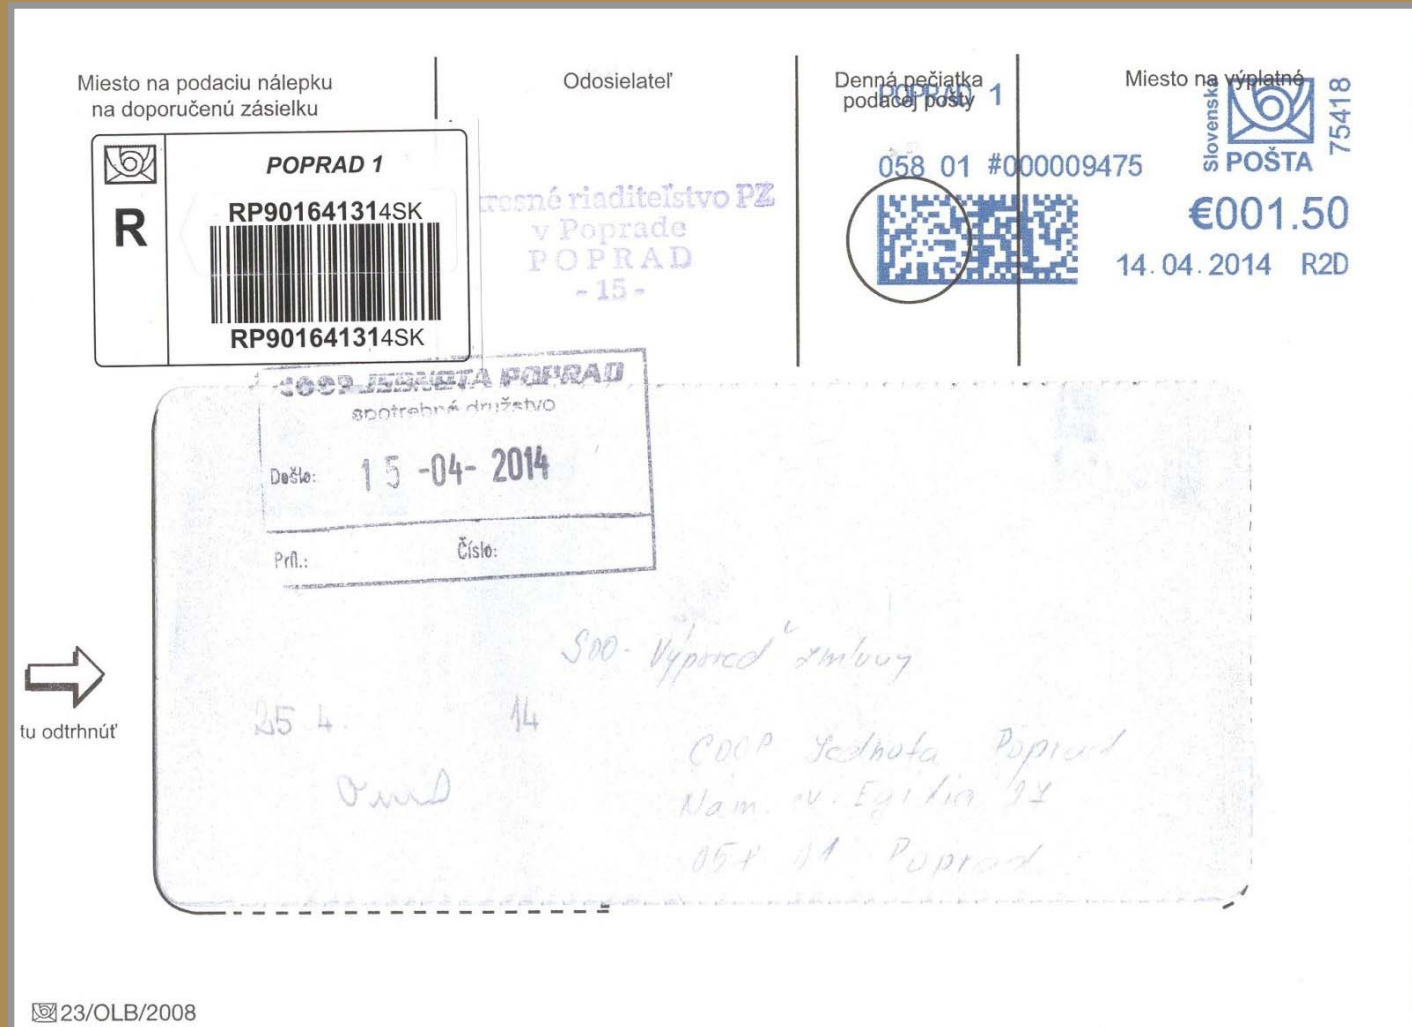 Miesto na podaciu nálepku
na doporučenú zásielku
R
POPRAD 1
RP901641314SK
RP901641314SK
Odosielateľ
resné riaditeľstvo PZ
v Poprade
POPRAD
- 15 -
Denná pečiatka
podacej pošty
POPRAD 1
058 01 #000009475
Miesto na výplatné
Slovenská
POŠTA
75418
€001.50
14.04.2014 R2D
COOP JEDNOTA POPRAD
spotrebné družstvo
Došlo: 15 -04- 2014
Príl.: Číslo:
Výpoveď zmluvy
25 4. 14
COOP Jednota Poprad
Nam. sv. Egídia
058 01 Poprad
tu odtrhnúť
23/OLB/2008